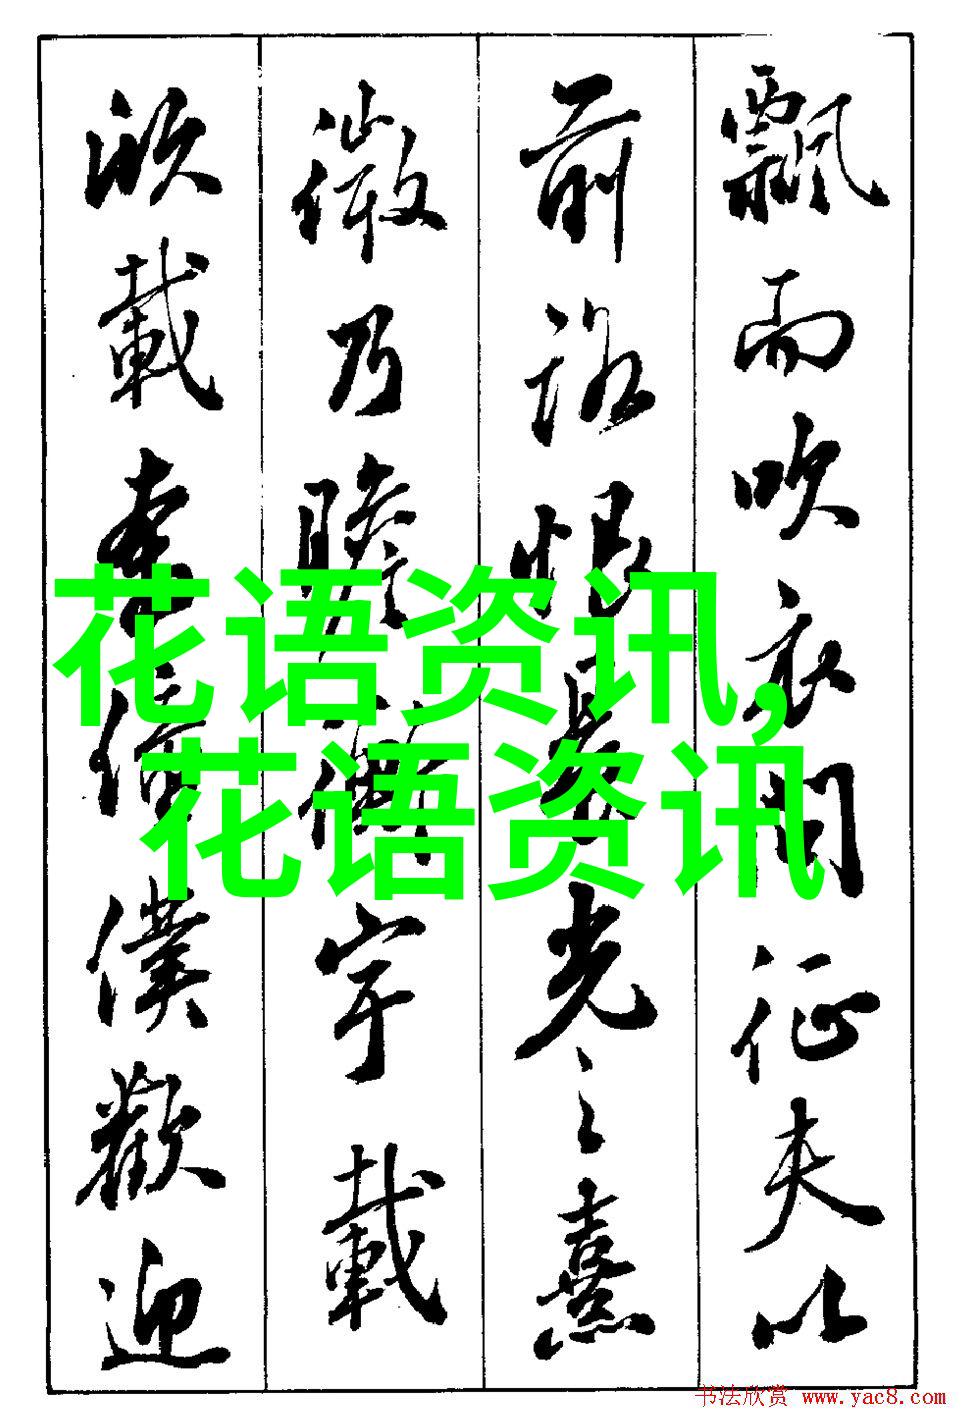 飄而吹衣問征夫以
前路恨晨光之熹
微乃瞻衡宇載
欣載奔僮僕歡迎
花语资讯,
花语资讯
书法欣赏 www.yac8.com